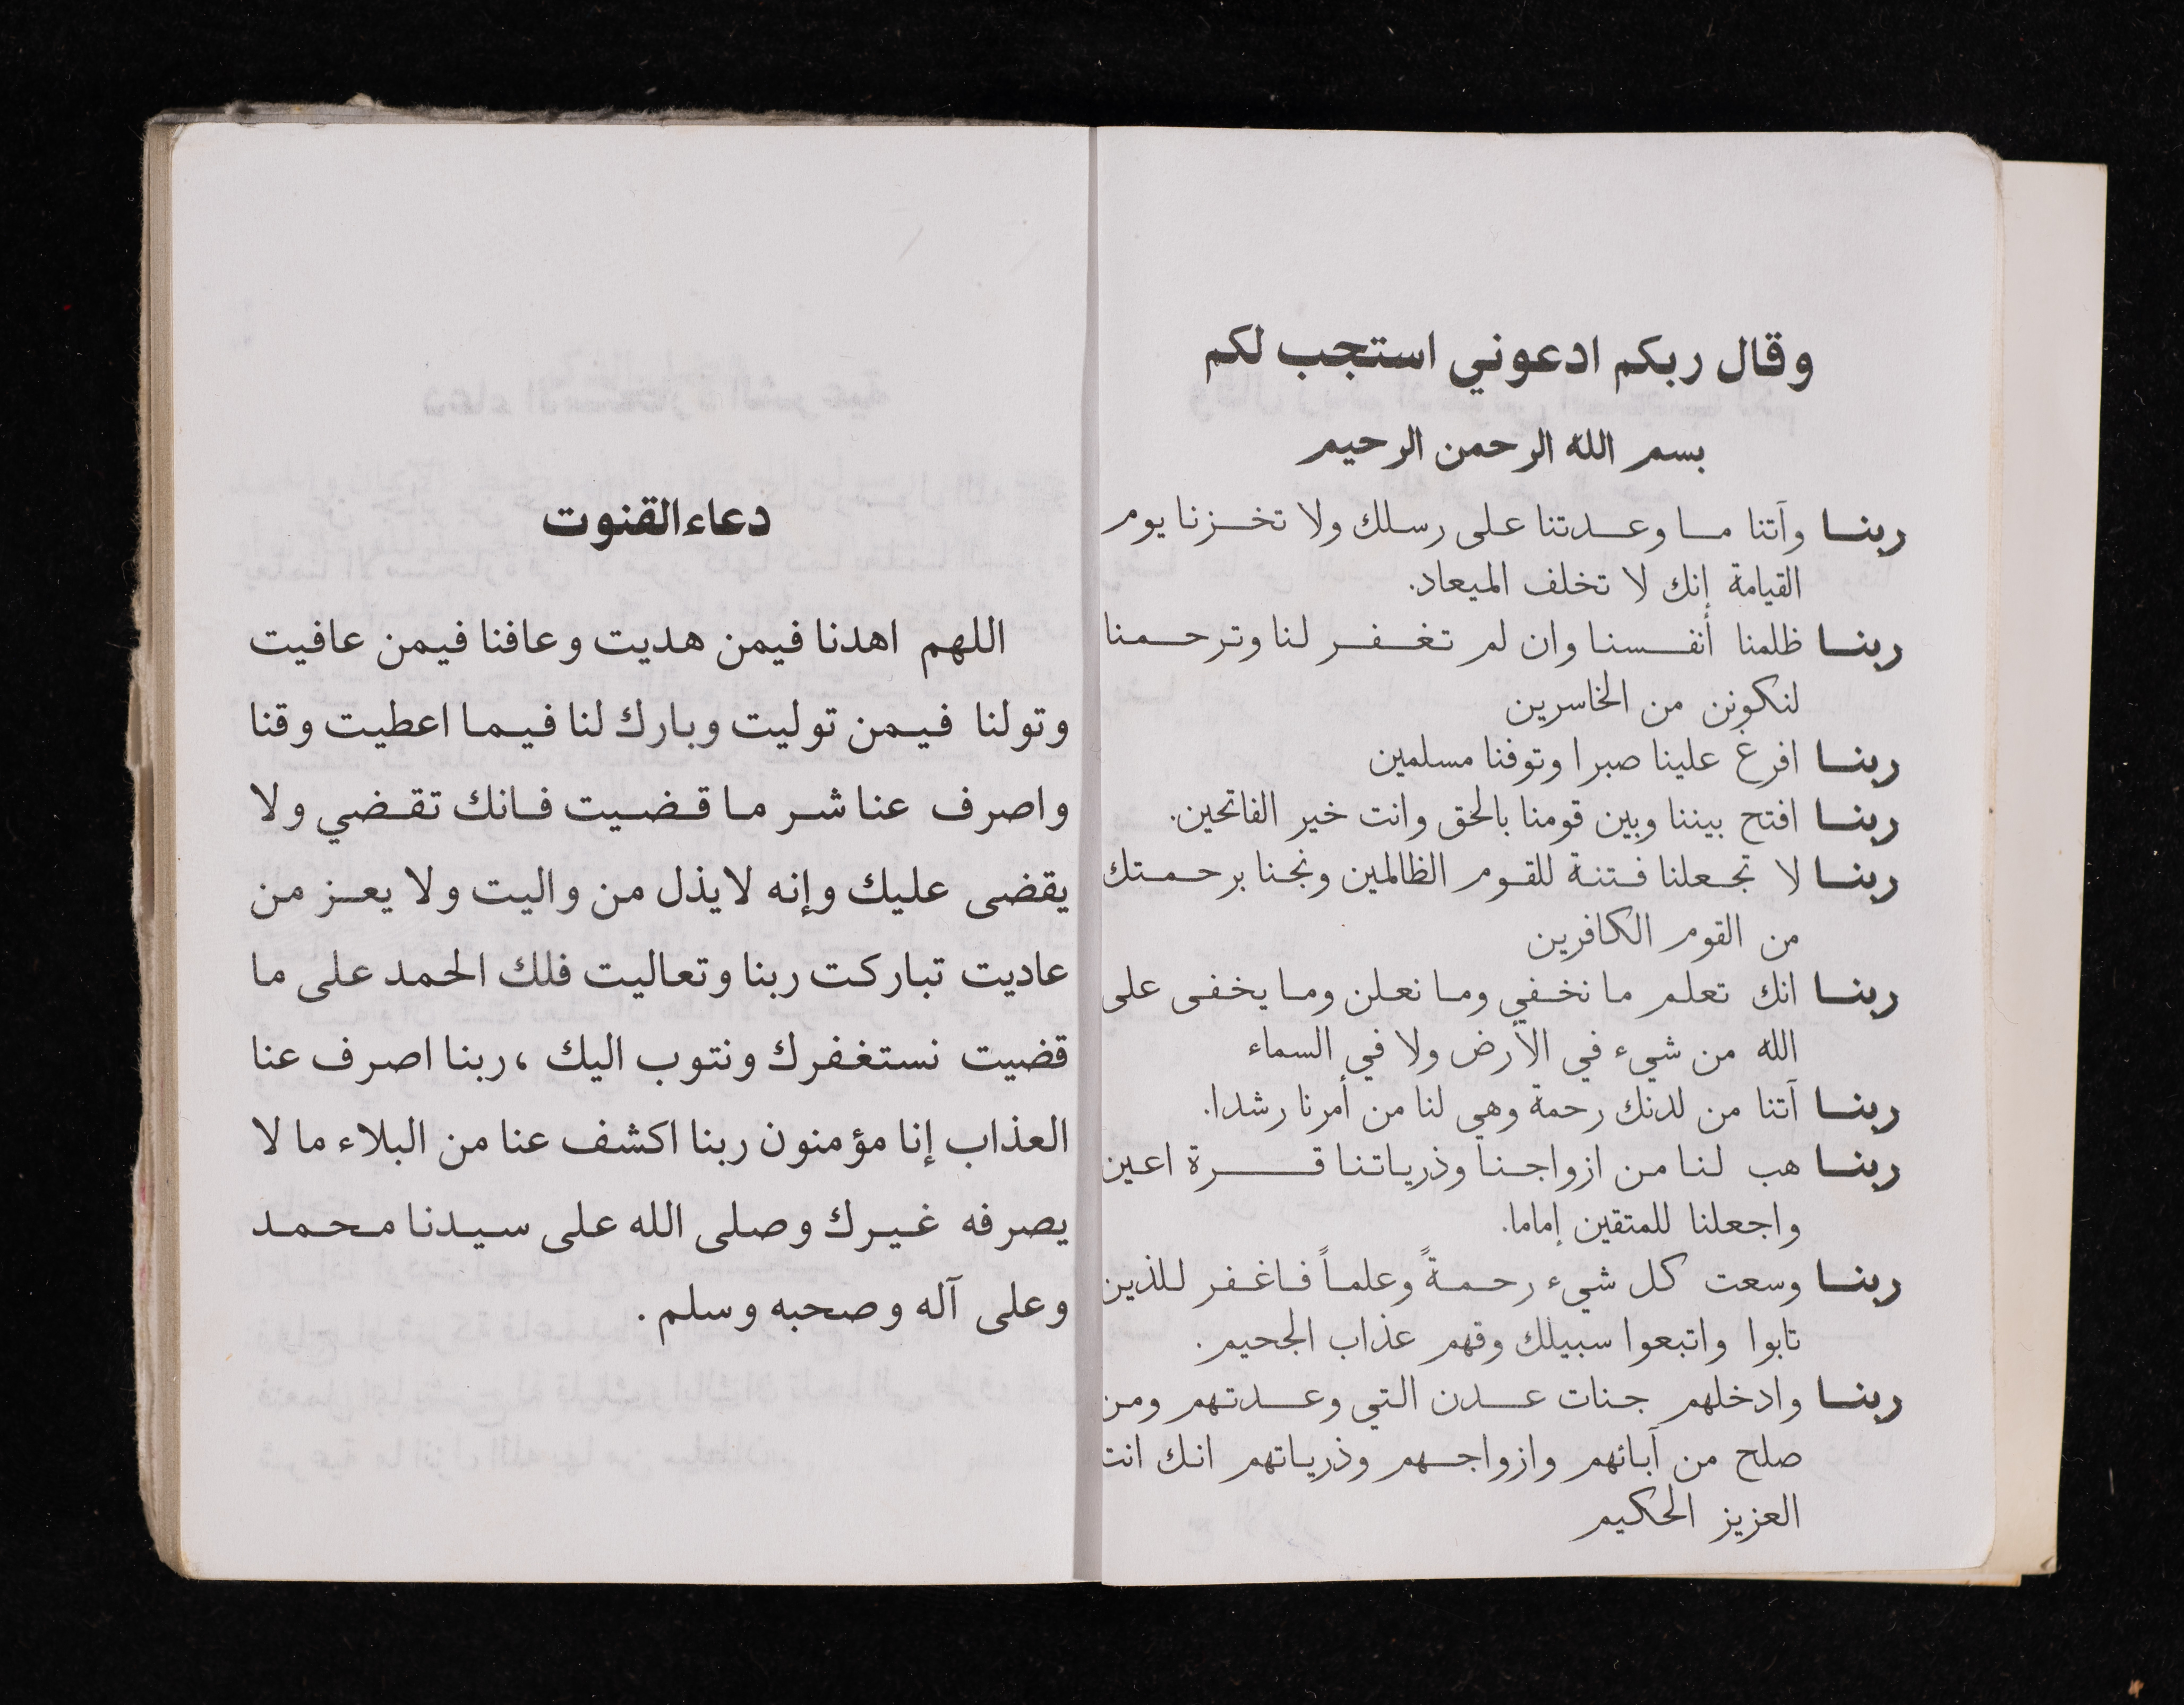 وقال ربكم ادعوني استجب لكم
بسم الله الرحمن الرحيم
ربنا وآتنا ما وعدتنا على رسلك ولا تخزنا يوم
القيامة إنك لا تخلف الميعاد.
ربنا ظلمنا أنفسنا وان لم تغفر لنا وترحمنا
لنكونن من الخاسرين
ربنا افرغ علينا صبرا وتوفنا مسلمين
ربنا افتح بيننا وبين قومنا بالحق وانت خير الفاتحين.
ربنا لا تجعلنا فتنة للقوم الظالمين ونجنا برحمتك
من القوم الكافرين
ربنا انك تعلم ما نخفي وما نعلن وما يخفى على
الله من شيء في الأرض ولا في السماء
ربنا آتنا من لدنك رحمة وهي لنا من أمرنا رشدا.
ربنا هب لنا من ازواجنا وذرياتنا قرة اعين
واجعلنا للمتقين إماما.
ربنا وسعت كل شيء رحمةً وعلماً فاغفر للذين
تابوا واتبعوا سبيلك وقهم عذاب الجحيم.
ربنا وادخلهم جنات عدن التي وعدتهم ومن
صلح من آبائهم وازواجهم وذرياتهم انك انت
العزيز الحكيم
دعاء القنوت
اللهم اهدنا فيمن هديت وعافنا فيمن عافيت
وتولنا فيمن توليت وبارك لنا فيما اعطيت وقنا
واصرف عنا شر ما قضيت فانك تقضي ولا
يقضى عليك وإنه لا يذل من واليت ولا يعز من
عاديت تباركت ربنا وتعاليت فلك الحمد على ما
قضيت نستغفرك ونتوب اليك ، ربنا اصرف عنا
العذاب إنا مؤمنون ربنا اكشف عنا من البلاء ما لا
يصرفه غيرك وصلى الله على سيدنا محمد
وعلى آله وصحبه وسلم .